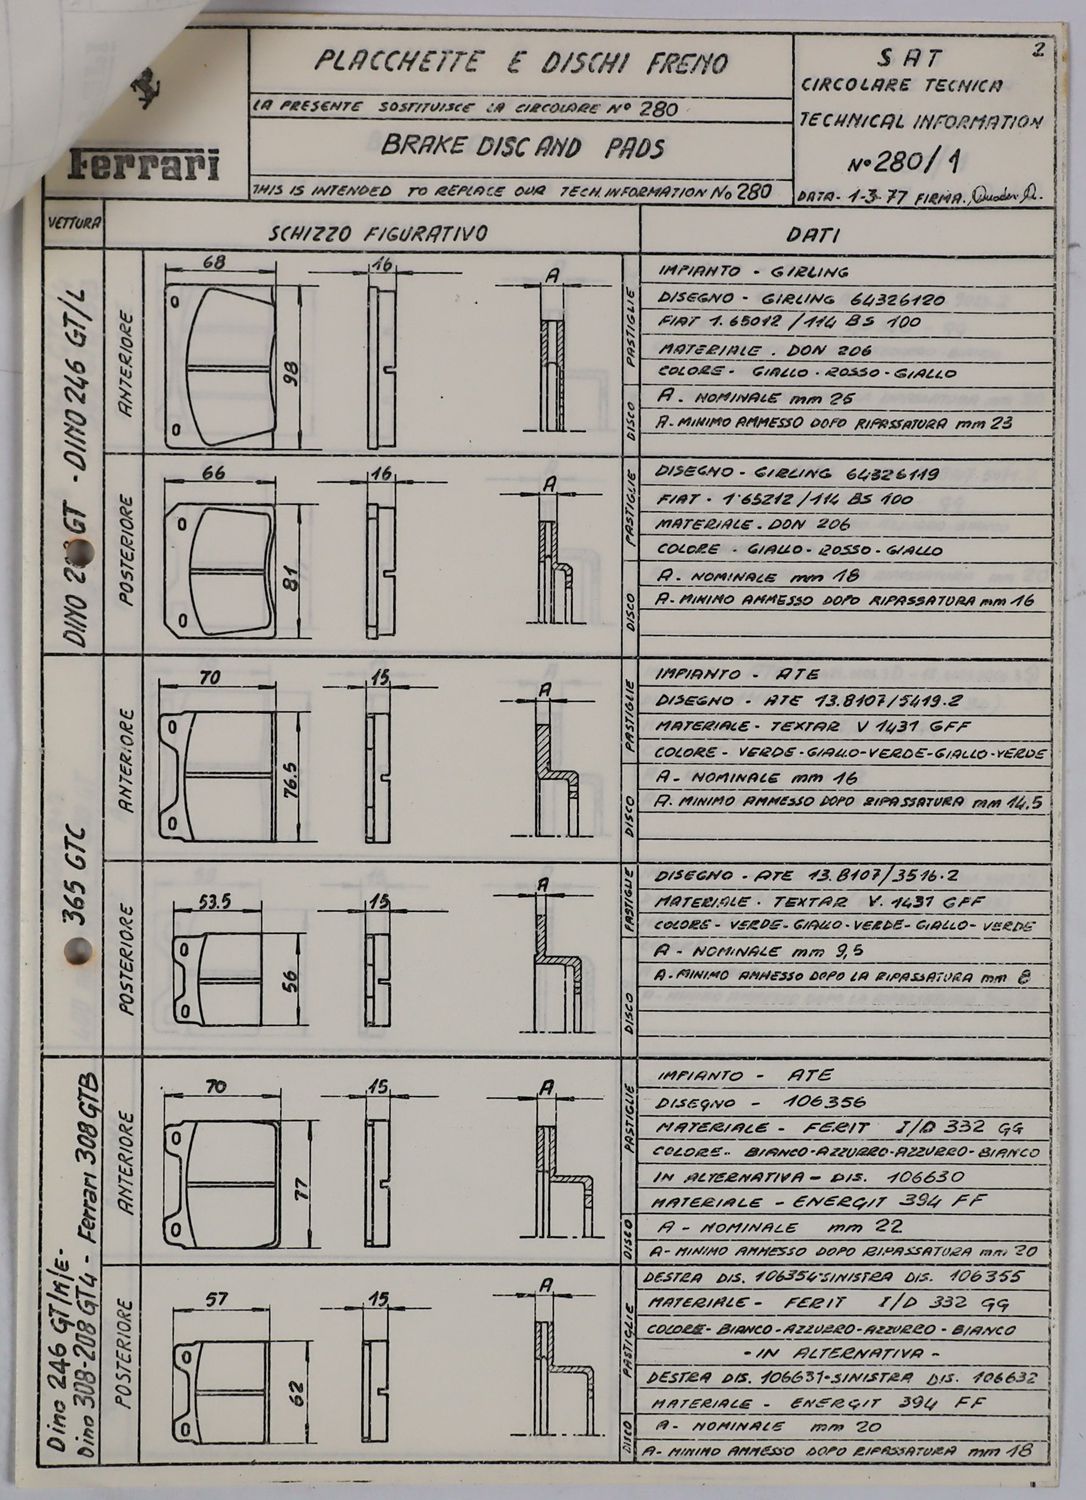 2
Ferrari
PLACCHETTE E DISCHI FRENO
LA PRESENTE SOSTITUISCE LA CIRCOLARE N° 280
BRAKE DISC AND PADS
THIS IS INTENDED TO REPLACE OUR TECH. INFORMATION No 280
SAT
CIRCOLARE TECNICA
TECHNICAL INFORMATION
N° 280/1
DATA - 1-3-77 FIRMA.
VETTURA
SCHIZZO FIGURATIVO
DATI
GT - DINO 246 GT/L
DINO
ANTERIORE
68
16
A
98
PASTIGLIE
DISCO
IMPIANTO - GIRLING
DISEGNO - GIRLING 64326120
FIAT 1.65012 /114 BS 100
MATERIALE . DON 206
COLORE - GIALLO - ROSSO - GIALLO
A . NOMINALE mm 25
A. MINIMO AMMESSO DOPO RIPASSATURA mm 23
POSTERIORE
66
16
A
81
PASTIGLIE
DISCO
DISEGNO - GIRLING 64326119
FIAT - 1.65212 /114 BS 100
MATERIALE . DON 206
COLORE - GIALLO - ROSSO - GIALLO
A. NOMINALE mm 18
A. MINIMO AMMESSO DOPO RIPASSATURA mm 16
365 GTC
ANTERIORE
70
15
A
76.5
PASTIGLIE
DISCO
IMPIANTO - ATE
DISEGNO - ATE 13.8107/5419.2
MATERIALE - TEXTAR V 1431 GFF
COLORE - VERDE-GIALLO-VERDE-GIALLO-VERDE
A - NOMINALE mm 16
A. MINIMO AMMESSO DOPO RIPASSATURA mm 14.5
POSTERIORE
53.5
15
A
56
PASTIGLIE
DISCO
DISEGNO - ATE 13.8107/3516.2
MATERIALE - TEXTAR V. 1431 GFF
COLORE - VERDE - GIALLO - VERDE - GIALLO - VERDE
A - NOMINALE mm 9,5
A. MINIMO AMMESSO DOPO LA RIPASSATURA mm 8
Dino 246 GT/M/E-
Dino 308-208 GT4 - Ferrari 308 GTB
ANTERIORE
70
15
A
77
PASTIGLIE
DISCO
IMPIANTO - ATE
DISEGNO - 106356
MATERIALE - FERIT I/D 332 GG
COLORE - BIANCO-AZZURRO-AZZURRO-BIANCO
IN ALTERNATIVA - DIS. 106630
MATERIALE - ENERGIT 394 FF
A - NOMINALE mm 22
A - MINIMO AMMESSO DOPO RIPASSATURA mm 20
POSTERIORE
57
15
A
62
PASTIGLIE
DISCO
DESTRA DIS. 106354-SINISTRA DIS. 106355
MATERIALE - FERIT I/D 332 GG
COLORE - BIANCO-AZZURRO-AZZURRO - BIANCO
- IN ALTERNATIVA -
DESTRA DIS. 106631-SINISTRA DIS. 106632
MATERIALE - ENERGIT 394 FF
A - NOMINALE mm 20
A - MINIMO AMMESSO DOPO RIPASSATURA mm 18